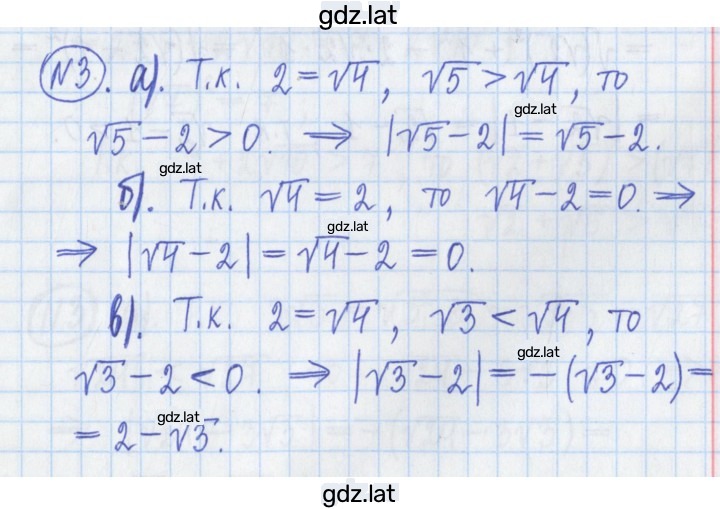 gdz.lat
№3. а). Т.к. 2 = √4, √5 > √4, то
gdz.lat
√5 − 2 > 0. ⇒ |√5 − 2| = √5 − 2.
gdz.lat
б). Т.к. √4 = 2, то √4 − 2 = 0. ⇒
gdz.lat
⇒ |√4 − 2| = √4 − 2 = 0.
в). Т.к. 2 = √4, √3 < √4, то
gdz.lat
√3 − 2 < 0. ⇒ |√3 − 2| = −(√3 − 2) =
gdz.lat
= 2 − √3.
gdz.lat